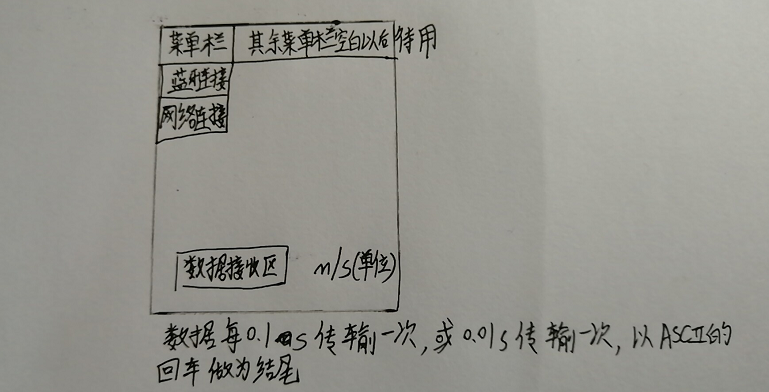 菜单栏 其余菜单栏空白以后待用
蓝牙连接
网络连接
数据接收区 m/s(单位)
数据每0.1s传输一次,或0.01s传输一次,以ASCII的
回车做为结尾